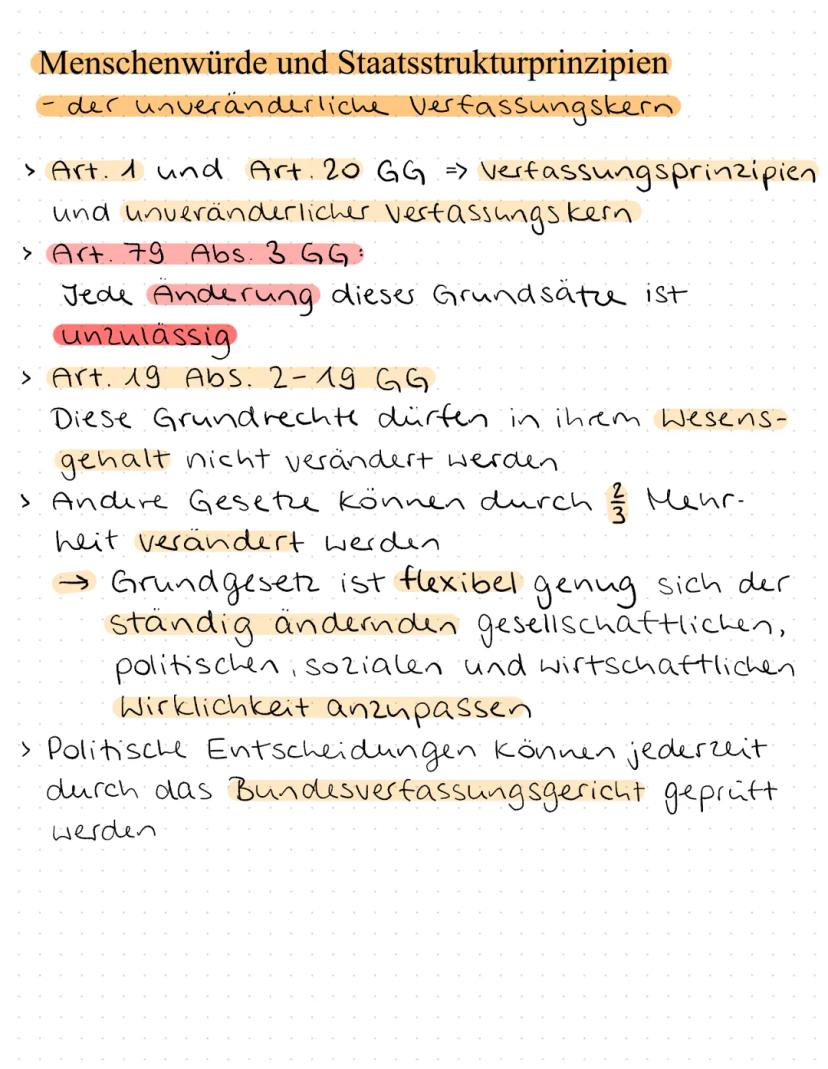 Menschenwürde und Staatsstrukturprinzipien
- der unveränderliche Verfassungskern
> Art. 1 und Art. 20 GG => Verfassungsprinzipien
und unveränderlicher Verfassungskern
> Art. 79 Abs. 3 GG:
Jede Änderung dieser Grundsätze ist
unzulässig
> Art. 19 Abs. 2-19 GG
Diese Grundrechte dürfen in ihrem Wesens-
gehalt nicht verändert werden
> Andere Gesetze können durch 2/3 Mehr-
heit verändert werden
→ Grundgesetz ist flexibel genug sich der
ständig ändernden gesellschaftlichen,
politischen, sozialen und wirtschaftlichen
Wirklichkeit anzupassen
> Politische Entscheidungen können jederzeit
durch das Bundesverfassungsgericht geprüft
werden